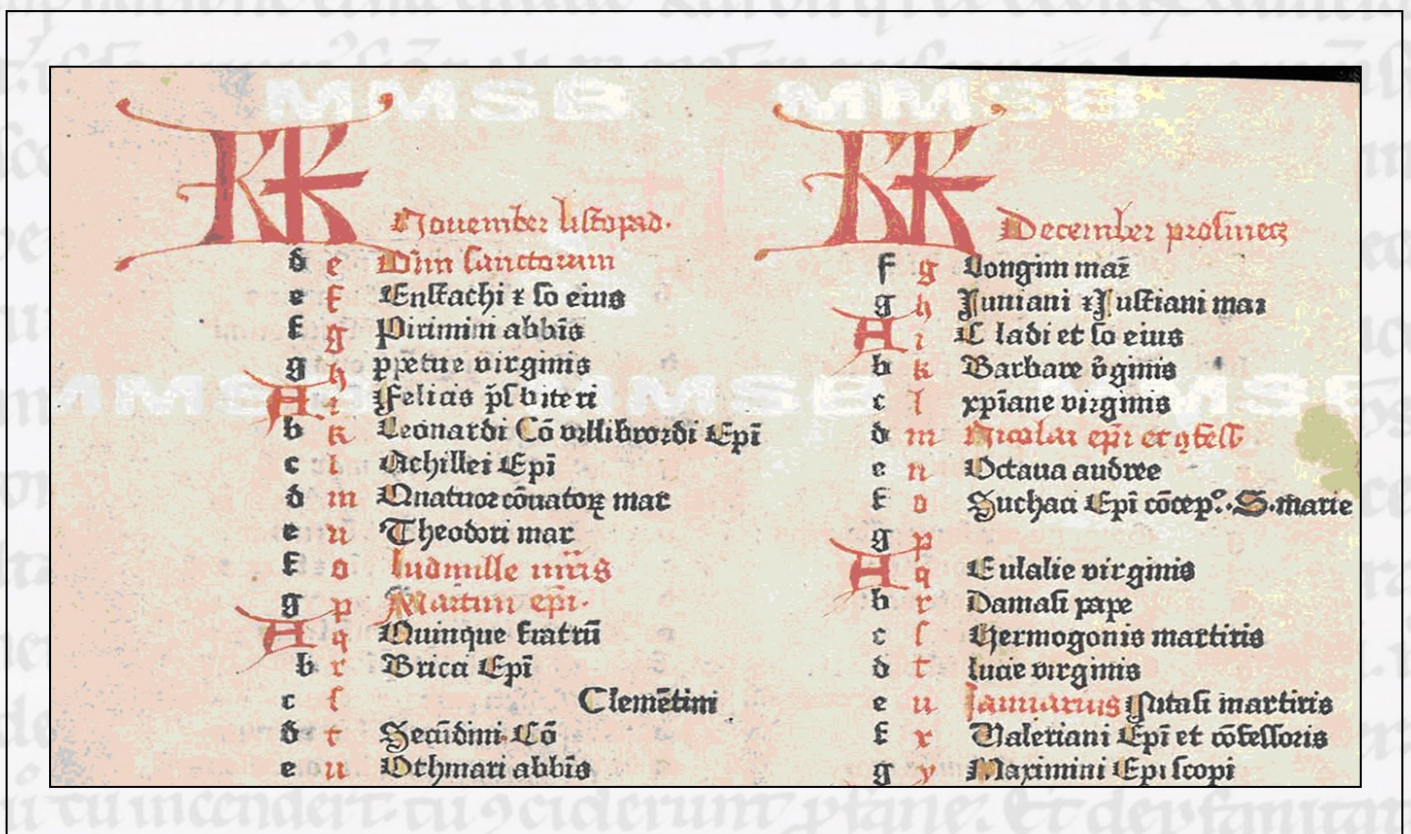 MMSB MMSB
KK
Nouember listopad.
d e Om̅ium sanctorum
e f Eustachi ⁊ so eius
f g Pirimini abbi̅s
g h pp̅etue virginis
A i Felicis p̅sbiteri
b k Leonardi Co̅ willibrordi Epi̅
c l Achillei Epi̅
d m Quatuor co̅natoꝝ mar
e n Theodori mar
f o ludmille
g p Martini epi̅.
A q Quinque fratru̅
b r Bricci Epi̅
c s Cleme̅tini
d t Secu̅dini Co̅
e u Othmari abbi̅s
KK
December prosinecz
f g Longini mar̅
g h Juniani ⁊ Justiani mar
A i C ladi et so eius
b k Barbare v̅ginis
c l xp̅iane virginis
d m Nicolai epi̅ et ꝯfess
e n Octaua andree
f o Suchari Epi̅ co̅cep°. S. marie
g p
A q Eulalie virginis
b r Damasi pape
c s Hermogonis martiris
d t lucie virginis
e u Ianuarius Nitasi martiris
f x Valeriani Epi̅ et co̅fessoris
g y Maximini Epi scopi
MMSB MMSB MMSB